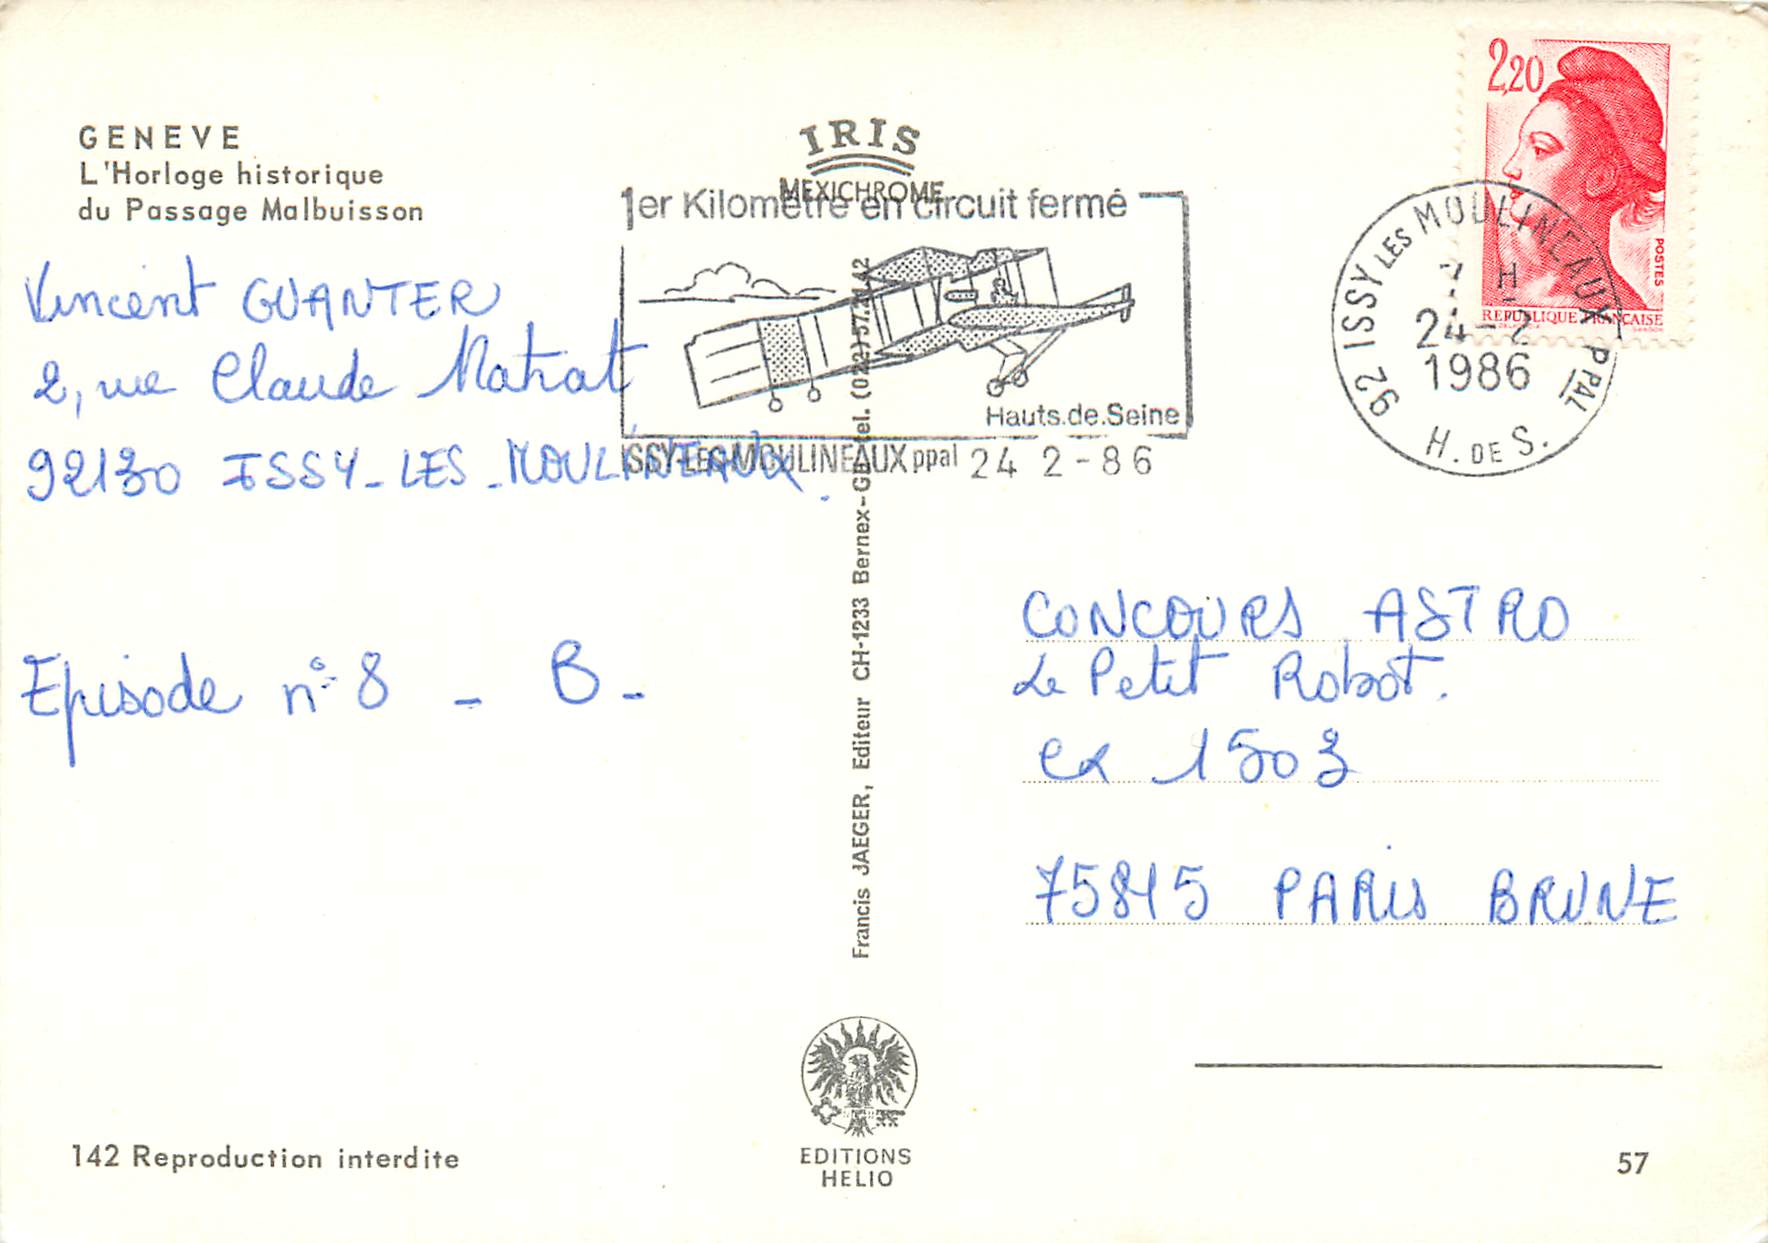 GENEVE
L'Horloge historique
du Passage Malbuisson
IRIS
MEXICHROME
2,20
POSTES
REPUBLIQUE FRANÇAISE
1er Kilomètre en circuit fermé
Hauts.de.Seine
ISSY-LES-MOULINEAUX ppal 24 2-86
92 ISSY LES MOULINEAUX PPAL
H
24-2
1986
H. DE S.
Vincent GUANTER
2, rue Claude Matrat
92130 ISSY-LES-MOULINEAUX.
Episode n° 8 - B -
CONCOURS ASTRO
Le Petit Robot.
CX 1503
75815 PARIS BRUNE
Francis JAEGER, Editeur CH-1233 Bernex-GE tel. (022) 57.21.42
EDITIONS
HELIO
142 Reproduction interdite
57